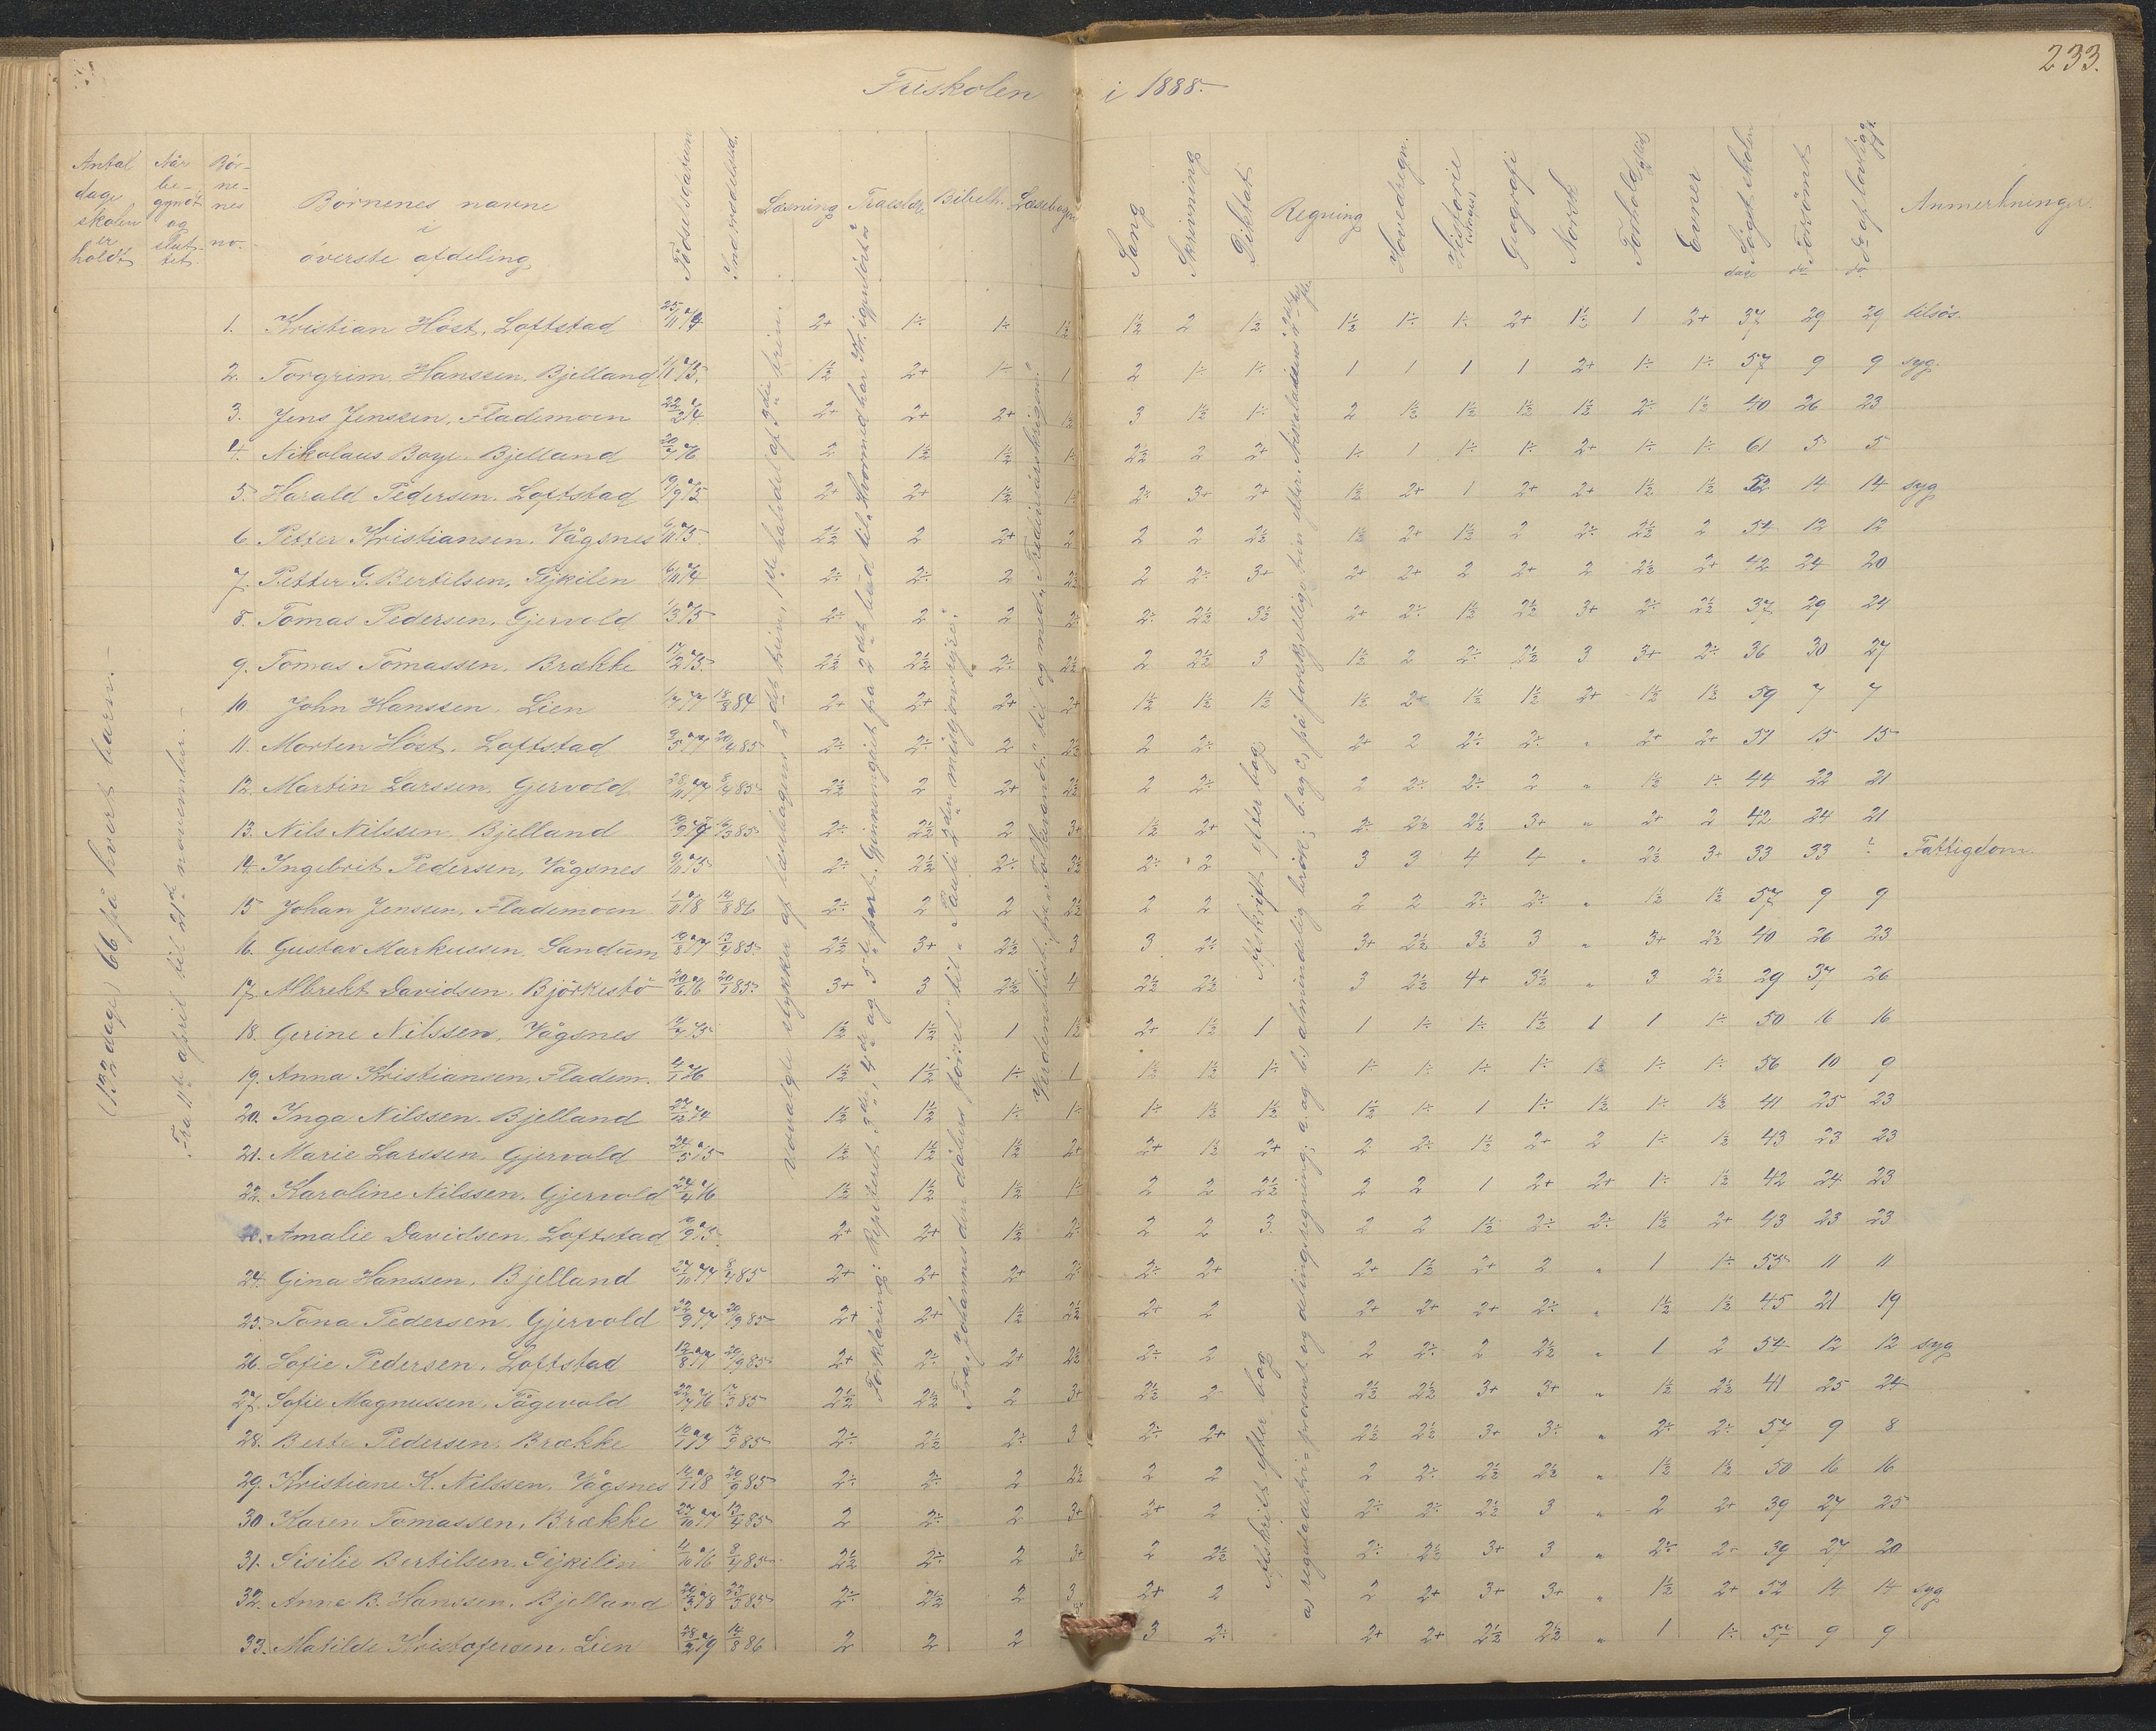 233.
Friskolen i 1888.
Antal dage skolen er holdt
Når be- gynt og slut- tet.
Bör- ne- nes no.
Börnenes navne i överste afdeling
Födselsdatum
Læsning
Bibelh.
Læsebogen
Sang
Skrivning
Diktat
Regning
Hovedregn.
Historie
Geografi
Norsk
Forhold
Evner
Sögt skolen dage
Forsömt do
do af lovlig
Anmerkninger.
(132 dage) 66 på hvert barn.
Fra 11te april til 21de november.
1. Kristian Höst, Loftstad 2+ 1÷ 1÷ 1½ 1½ 2 1½ 1½ 1÷ 1÷ 2+ 1½ 1 2+ 37 29 29 tilsös.
2. Torgrim Hanssen, Bjelland 1½ 2+ 1÷ 1 2 1÷ 1÷ 1 1 1 1 2+ 1÷ 1÷ 57 9 9 syg.
3. Jens Jenssen, Flademoen 22/2 74 2+ 2+ 2+ 1½ 3 1½ 1÷ 2 1½ 1½ 1½ 1½ 2÷ 1½ 40 26 23
4. Nikolaus Boye, Bjelland 20/7 76 2 1½ 1½ 1÷ 2½ 2 2+ 1÷ 1 1÷ 1÷ 2+ 1÷ 1÷ 61 5 5
5. Harald Pedersen, Loftstad 19/9 75 2+ 2+ 1½ 1½ 2÷ 3+ 2+ 1½ 2+ 1 2+ 2+ 1½ 1½ 52 14 14 syg
6. Petter Kristiansen, Vågsnes 6/10 75 2½ 2 2+ 2 2 2 2½ 1½ 2+ 1½ 2 2÷ 2½ 2 54 12 12
7. Petter G. Bertilsen, 6/11 74 2÷ 2÷ 2 2½ 2 2÷ 3+ 2+ 2+ 2 2+ 2 2½ 2+ 42 24 20
8. Tomas Pedersen, Gjervold 1/3 75 2÷ 2 2 2÷ 2÷ 2½ 3½ 2+ 2÷ 1½ 2½ 3+ 2÷ 2½ 37 29 24
9. Tomas Tomassen, Brække 17/2 75 2½ 2½ 2÷ 2½ 2 2½ 3 1½ 2 2÷ 2½ 3 3+ 2÷ 36 30 27
10. John Hanssen, Lien 1/7 77 18/8 84 2+ 2+ 2+ 2+ 1½ 1½ 1½ 1½ 2+ 1½ 1½ 2+ 1½ 1½ 59 7 7
11. Morten Höst, Loftstad 9/5 77 20/4 85 2÷ 2÷ 2 2½ 2 2÷ 2+ 2 2÷ 2÷ " 2+ 2+ 51 15 15
12. Martin Larssen, Gjervold 28/11 77 8/4 85 2½ 2 2+ 2½ 2 2÷ 2 2÷ 2÷ 2 " 1½ 1÷ 44 22 21
13. Nils Nilssen, Bjelland 2÷ 2½ 2 3+ 1½ 2+ 2÷ 2½ 2½ 3+ " 2+ 2 42 24 21
14. Ingebrit Pedersen, Vågsnes 9/11 75 2÷ 2½ 2÷ 3½ 2÷ 2 3 3 4 4 " 2½ 3+ 33 33 ? Fattigdom.
15. Johan Jenssen, Flademoen 1/11 78 14/8 86 2÷ 2 2 2½ 2 2 2 2 2÷ 2÷ " 1½ 1½ 57 9 9
16. Gustav Markussen, Sandum 19/8 77 13/4 85 2½ 3+ 2½ 3 3 2÷ 3+ 2½ 3½ 3 " 3+ 2½ 40 26 23
17. Albrekt Davidsen, Björkestö 20/6 76 20/1 85 3+ 3 2½ 4 2½ 2½ 3 2½ 4+ 3½ " 3 2½ 29 37 26
18. Gerine Nilssen, Vågsnes 1½ 1½ 1 1½ 2+ 1½ 1 1 1÷ 1÷ 1½ 1 1 1÷ 50 16 16
19. Anna Kristiansen, Fladem. 4/1 76 1½ 1½ 1÷ 1 1½ 1½ 1÷ 1÷ 1÷ 1÷ 1÷ 1½ 1÷ 1÷ 56 10 9
20. Inga Nilssen, Bjelland 27/12 74 1½ 1½ 1÷ 1÷ 1÷ 1½ 1½ 1½ 1÷ 1 1÷ 1½ 1÷ 1½ 41 25 23
21. Marie Larssen, Gjervold 24/5 75 1½ 1½ 1½ 2+ 2+ 1½ 2+ 2 2÷ 1½ 2+ 2 1÷ 1½ 43 23 23
22. Karoline Nilssen, Gjervold 24/4 76 1½ 1½ 1½ 1÷ 2 2 2½ 2 2 1 2+ 2+ 1÷ 1½ 42 24 23
Amalie Davidsen, Loftstad 2+ 2+ 1½ 2÷ 2 2 3 2 2 1½ 2÷ 2÷ 1½ 2+ 43 23 23
24. Gina Hanssen, Bjelland 27/10 77 8/4 85 2+ 2+ 2+ 2÷ 2÷ 2+ 2+ 1½ 2+ 2 " 1 1÷ 55 11 11
25. Tona Pedersen, Gjervold 22/9 77 20/9 85 2+ 2+ 1½ 2½ 2+ 2 2+ 2+ 2+ 2÷ " 1½ 1½ 45 21 19
26. Sofie Pedersen, Loftstad 12/8 77 20/9 85 2+ 2÷ 2+ 2½ 2÷ 2 2 2÷ 2 2½ " 1 2 54 12 12 syg
27. Sofie Magnussen, Tågevold 22/7 76 17/3 85 2½ 2½ 2 3+ 2½ 2 2½ 2½ 3+ 3+ " 1½ 2½ 41 25 24
28. Berte Pedersen, Brække 10/1 77 17/9 85 2÷ 2½ 2÷ 3 2÷ 2+ 2½ 2½ 3+ 3÷ " 2÷ 2÷ 57 9 8
29. Kristiane K. Nilssen, Vågsnes 14/1 78 20/9 85 2÷ 2÷ 2 2½ 2 2 2 2÷ 2½ 2½ " 1½ 1½ 50 16 16
30. Karen Tomassen, Brække 27/10 77 13/4 85 2 2÷ 2 3+ 2+ 2 2÷ 2÷ 2½ 3 " 2 2+ 39 27 25
31. Sisilie Bertilsen, 4/10 76 8/4 85 2½ 2÷ 2 3+ 2 2½ 2÷ 2½ 3+ 3 " 2÷ 2+ 39 27 20
32. Anne B. Hanssen, Bjelland 20/3 78 23/3 85 2÷ 2½ 2 3 2+ 2 2 2+ 3+ 3+ " 1½ 2+ 52 14 14 syg
33. Matilde Kristofersen, Lien 28/2 79 14/8 86 2 2 2 3 2÷ 2+ 2+ 2½ 2½ " 1 1÷ 57 9 9
Udvalgte stykker af læsebogens 2det trin, 1ste halvdel af 3die trin.
Forklaring: Repeteret 3die, 4de og 5te part. Gjennemgået fra 2det bud til
Fra "Johannes den döbers födsel" til "Pauli 2den misjonsreise".
Verdenshist. fra "Folkevandr." til og med "Frihedskrigen."
Niskrift efter bog
Niskrift efter bog
a) reguladetri, prosent og delingsregning; a. og b) almindelig brök; b. og c) på forskjellige trin efter Nicolaisens 2det hefte.